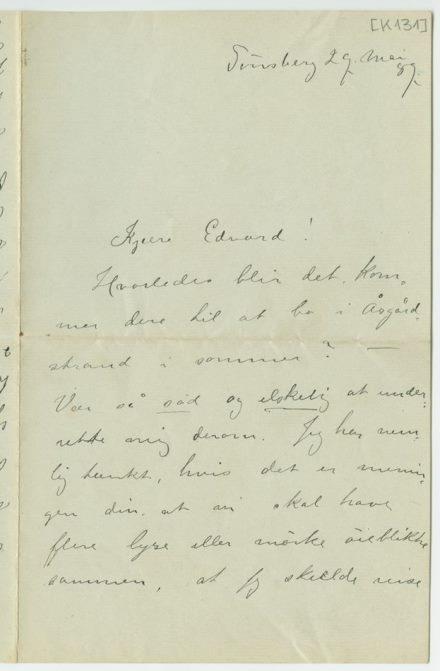 [K131]
Tönsberg 29. mai
89.
Kjære Edvard!
Hvorledes blir det. Kom-
mer dere til at bo i Åsgård-
strand i sommer? —
Vær så söd og elskelig at under-
rette mig derom. Jeg har nem-
lig tænkt, hvis det er menin-
gen din at vi skal have
flere lyse eller mörke öieblikke
sammen, at jeg skulde reise